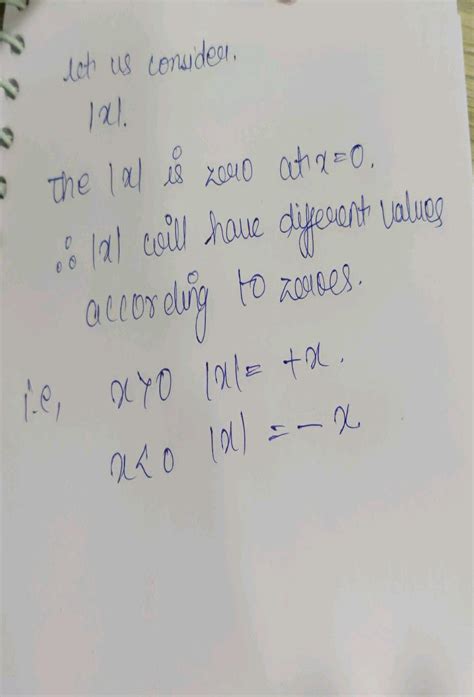 Let us consider.
|x|.
The |x| is zero at x=0.
∴ |x| will have different values
according to zeroes.
i.e, x>0 |x|= +x.
x<0 |x| = -x